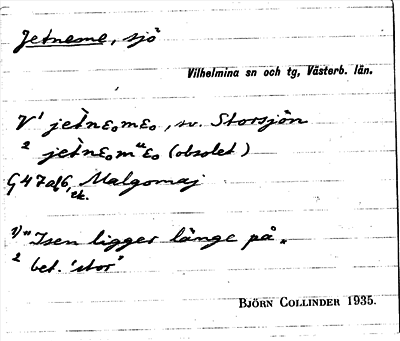 Jetneme, sjö
Vilhelmina sn och tg, Västerb. län.
V¹ jetnɛ₀mɛ₀, sv. Storsjön
² jetnɛ₀mᵘɛ₀ (obsolet)
Malgomaj
ek.
¹⁾ "Isen ligger länge på"
² bet. 'stor'
BJÖRN COLLINDER 1935.